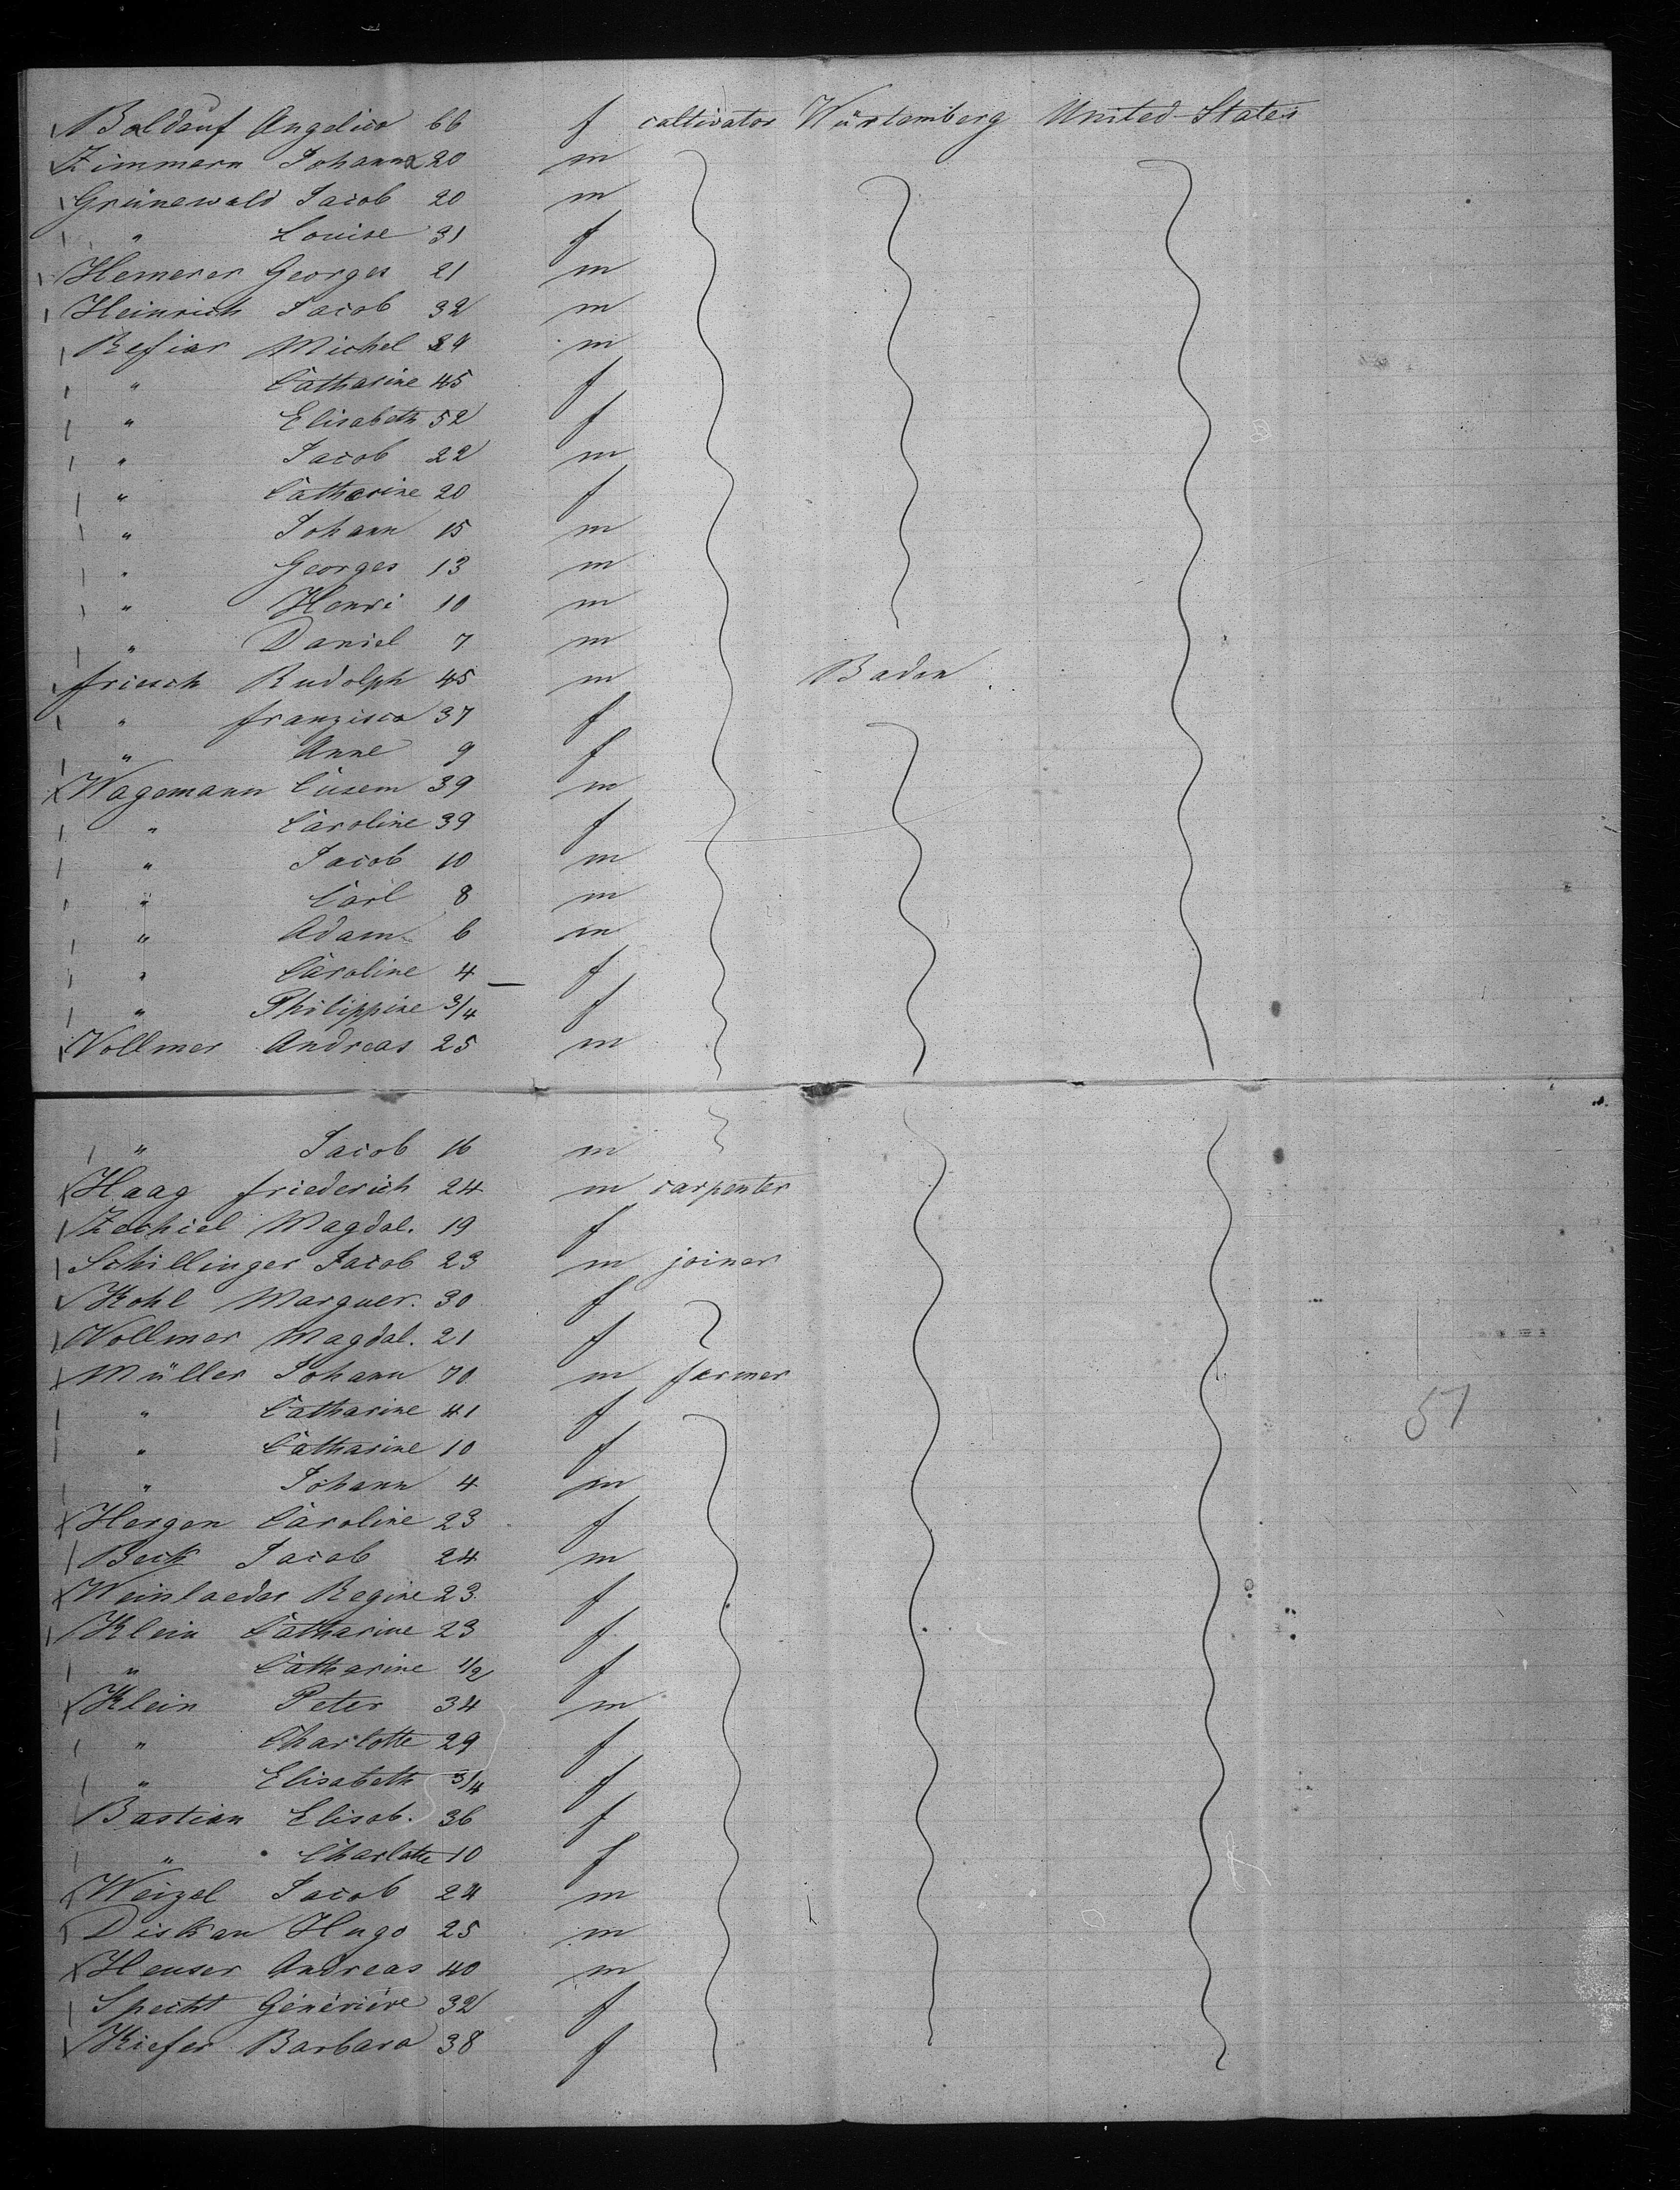 Baldauf Angelica 66 f cultivator Würtemberg United States
Zimmern Johann 20 m
Grünewald Jacob 20 m
" Louise 31 f
Hemerer Georges 21 m
Heinrich Jacob 32 m
Refior Michel m
" Catharine 45 f
" Elisabeth 52 f
" Jacob 22 m
" Catharine 20 f
" Johann 15 m
" Georges 13 m
" Henri 10 m
" Daniel 7 m
friesch Rudolph 45 m Baden
" franzisca 37 f
" Anne 9 f
Wagemann 39 m
" Caroline 39 f
" Jacob 10 m
" Carl 8 m
" Adam 6 m
" Caroline 4 f
" Philippine 3/4 f
Vollmer Andreas 25 m
" Jacob 16 m
Haag friederich 24 m carpenter
Zechiel Magdal. 19 f
Schillinger Jacob 23 m joiner
Kohl Marguer. 30 f
Vollmer Magdal. 21 f
Müller Johann 70 m farmer
" Catharine 41 f
" Catharine 10 f
" Johann 4 m
Hergen Caroline 23 f
Beck Jacob 24 m
Weinlaeder Regine 23 f
Klein Catharine 23 f
" Catharine 1/2 f
Klein Peter 34 m
" Charlotte 29 f
" Elisabeth 3/4 f
Bastian Elisab. 36 f
" Charlotte 10 f
Weizel Jacob 24 m
Diskan Hugo 25 m
Heuser Andreas 40 m
Specht 32 f
Kiefer Barbara 38 f
51